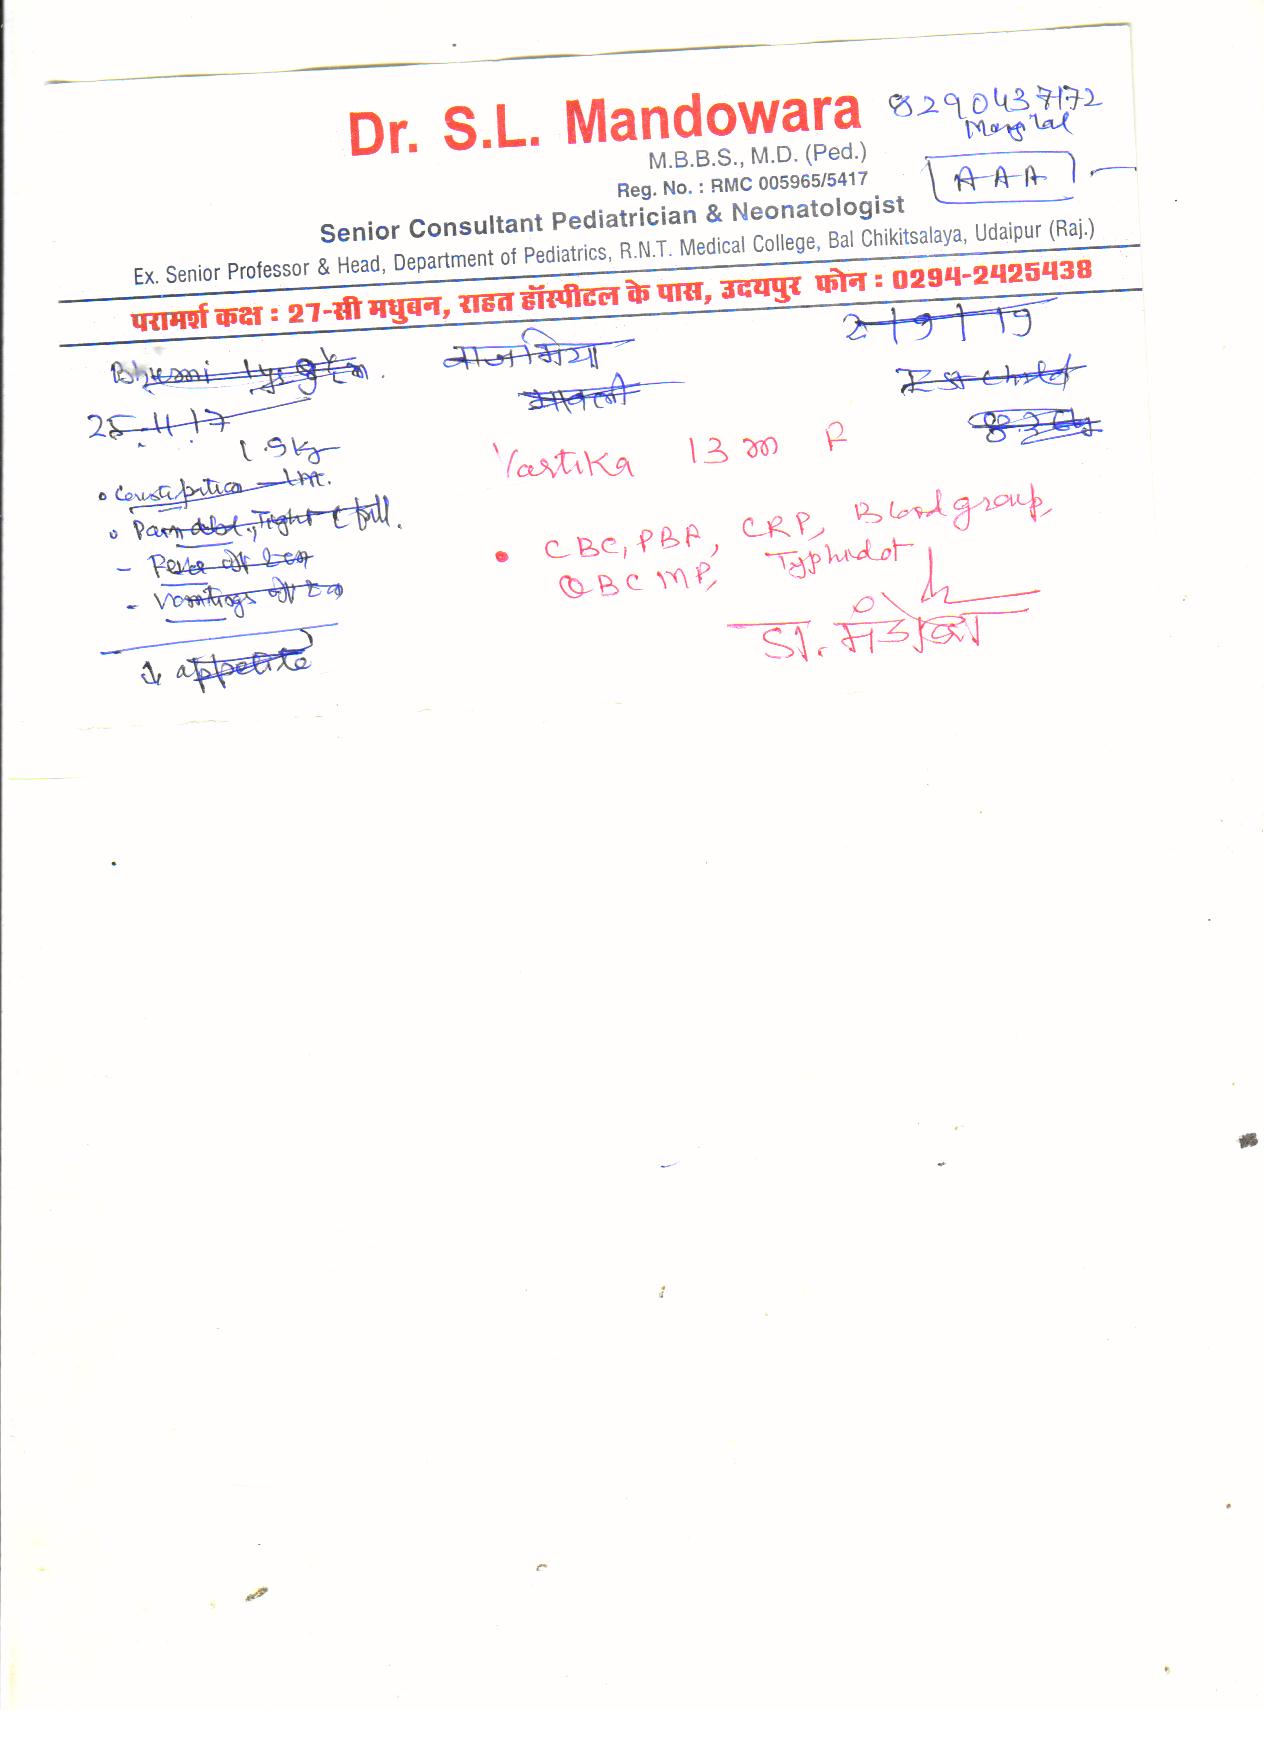 Dr. S.L. Mandowara
8290437172
M.B.B.S., M.D. (Ped.)
Reg. No. : RMC 005965/5417
AAA
Senior Consultant Pediatrician & Neonatologist
Ex. Senior Professor & Head, Department of Pediatrics, R.N.T. Medical College, Bal Chikitsalaya, Udaipur (Raj.)
परामर्श कक्ष : 27-सी मधुबन, राहत हॉस्पीटल के पास, उदयपुर फोन : 0294-2425438
2/9/19
Bhumi
मावली
Ist child
25.11.17
1.9 kg
Vartika 13 m F
• Constipation
• Pain abd., Tight
CBC, PBF, CRP, Blood group,
QBC MP, Typhidot
- Fever
- Vomitings
डॉ.
↓ appetite